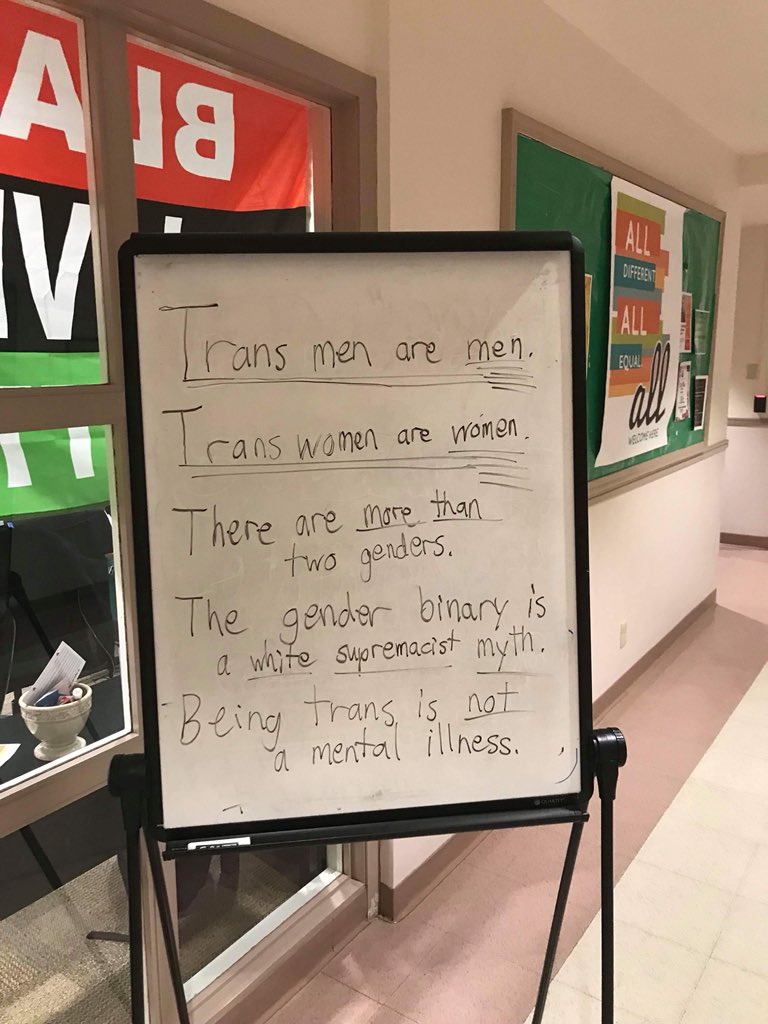 BLA
Trans men are men.
Trans women are women.
There are more than
two genders.
The gender binary is
a white supremacist myth.
Being trans is not
a mental illness.
QUARTET
ALL
DIFFERENT
ALL
EQUAL
all
WELCOME HERE